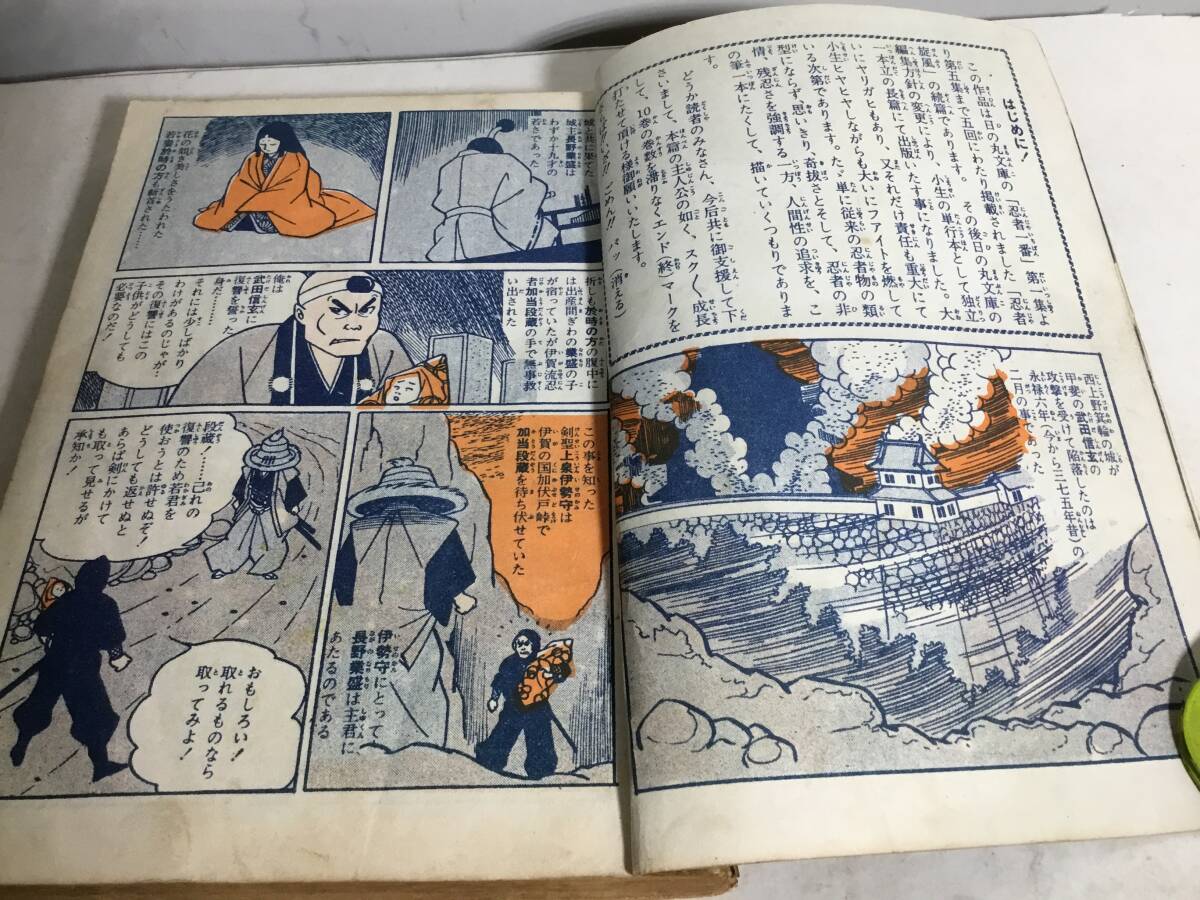 はじめに!
この作品は日の丸文庫の「忍者一番」第一集よ
り第五集まで五回にわたり掲載されました「忍者
旋風」の続篇であります。その後日の丸文庫の
編集方針の変更により、小生の単行本として独立
一本立の長篇にて出版いたす事になりました。大
いにヤリガヒもあり、又それだけ責任も重大にて
小生ヒヤヒヤしながらも大いにファイトを燃して
いる次第であります。た〻単に従来の忍者物の類
型にならず、思いきり、奇抜さとそして、忍者の非
情、残忍さを強調する一方、人間性の追求を、こ
の筆一本にたくして、描いていくつもりでありま
す。
どうか読者のみなさん、今后共に御支援して下
さいまして、本篇の主人公の如く、スクスク、成長
して、10巻の巻数を滞りなくエンド(終)マークを
打たせて頂ける様御願いいたします。
ごめん!! パッ(消える)
西上野箕輪の城が
甲斐の武田信玄の
攻撃を受けて陥落したのは
永禄六年(今から三七五年昔)の
二月の事であった
城と共に果た
城主長野業盛は
わずか十九才の
若さであった
花の如き美しさをうたわれた
若妻於時の方も斬首された……
折しも於時の方の腹中に
は出産間ぎわの業盛の子
が宿っていたが伊賀流忍
者加当段蔵の手で無事救
い出された
俺は
武田信玄に
復讐を誓った
身だ……
それには少しばかり
わけがあるのじゃが…
その復讐にはこの
子供がどうしても
必要なのだ!
この事を知った
剣聖上泉伊勢守は
伊賀の国加伏戸峠で
加当段蔵を待ち伏せていた
伊勢守にとって
長野業盛は主君に
あたるのである
段蔵!……己れの
復讐のため若君を
使おうとは許せぬぞ!
どうしても返せぬと
あらば剣にかけて
も取って見せるが
承知か!
おもしろい!
取れるものなら
取ってみよ!